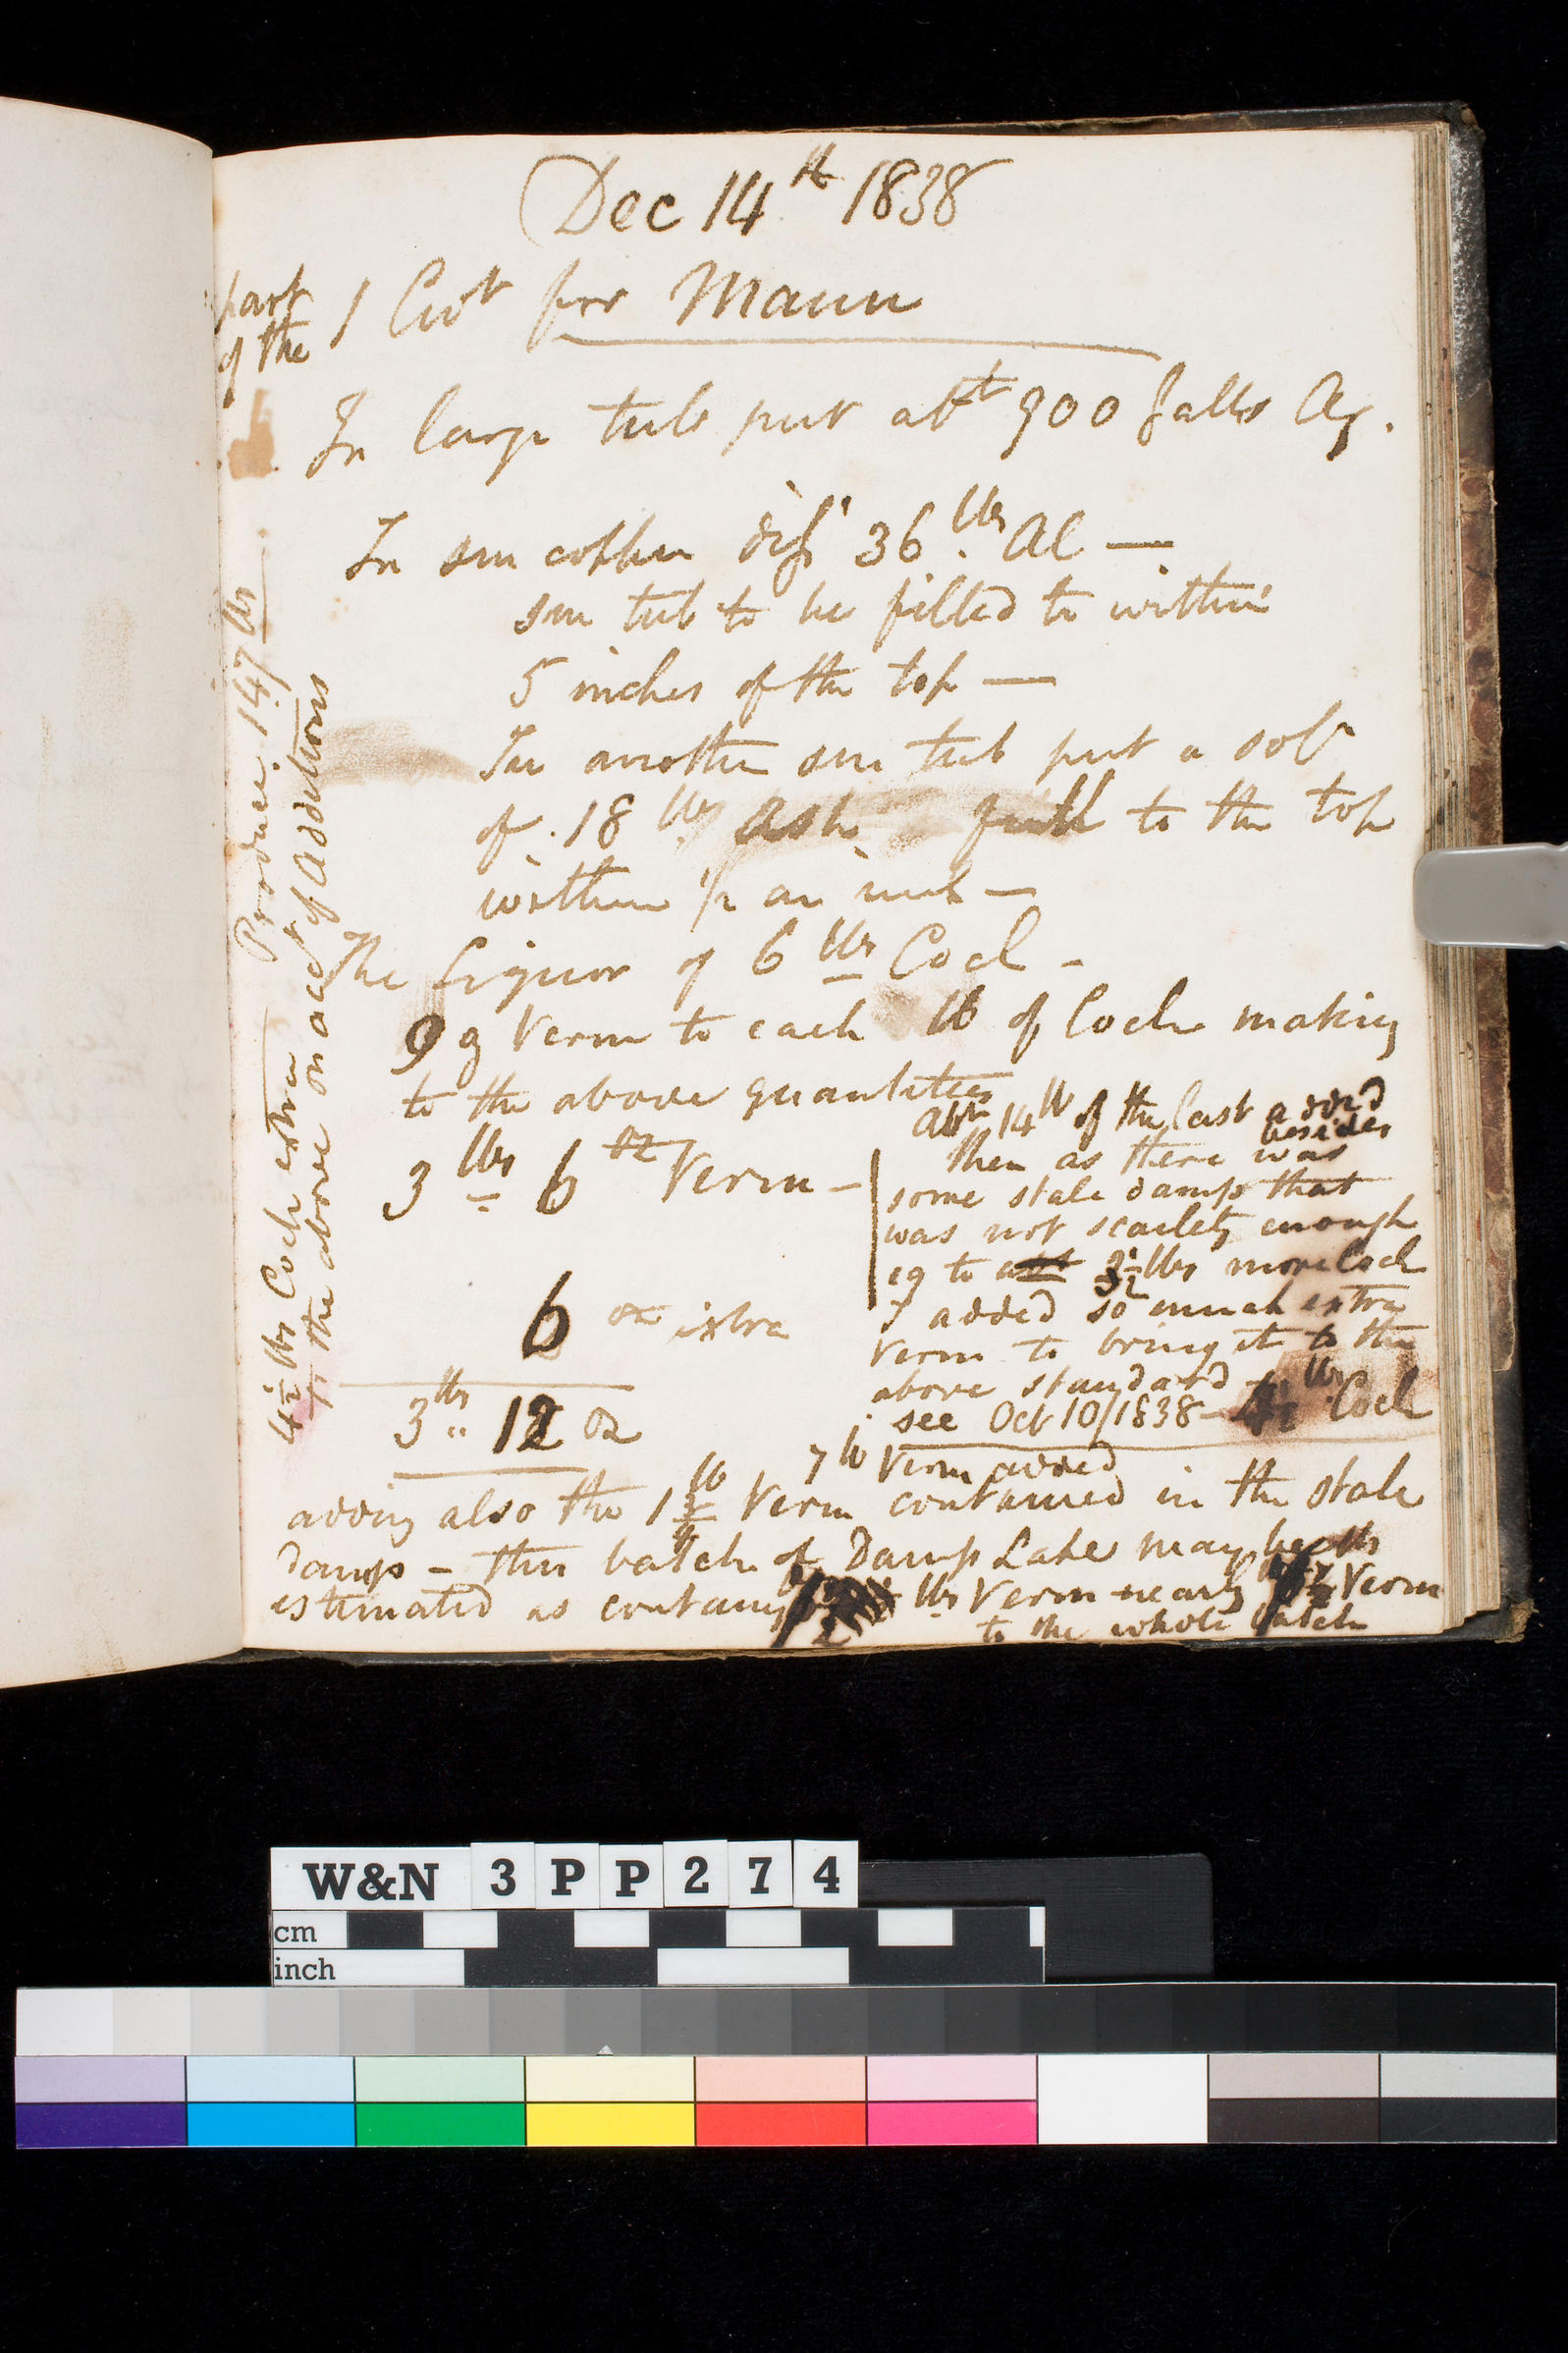 Dec 14th 1838
part
of the
1 Cwt for Mann
In large tub put abt 900 galls Aq.
In sm copper diss 36 lbs Al —
sm tub to be filled to within
5 inches of the top —
In another sm tub put a solⁿ
of 18 lbs Ash full to the top
within ½ an inch —
The liquor of 6 lbs Coch -
9 oz Verm to each lb of Coch making
to the above quantities
3 lbs 6 oz Verm —
6 oz extra
3 lbs 12 oz
abt 14 lb of the last added
besides
then as there was
some stale damp that
was not scarlety enough
eq to 3½ lbs more Coch
I added so much extra
Verm to bring it to the
above standard —
see Oct 10/1838 - 4½ lbs Coch
7 lb Verm added
adding also the 1 lb Verm contained in the stale
damp - this batch of Damp Lake may be
estimated as containg lbs Verm nearly Verm
to the whole batch
Produce. 147 lbs
4½ lbs Coch extra
to the above on acct of additions
W&N 3PP274
cm
inch